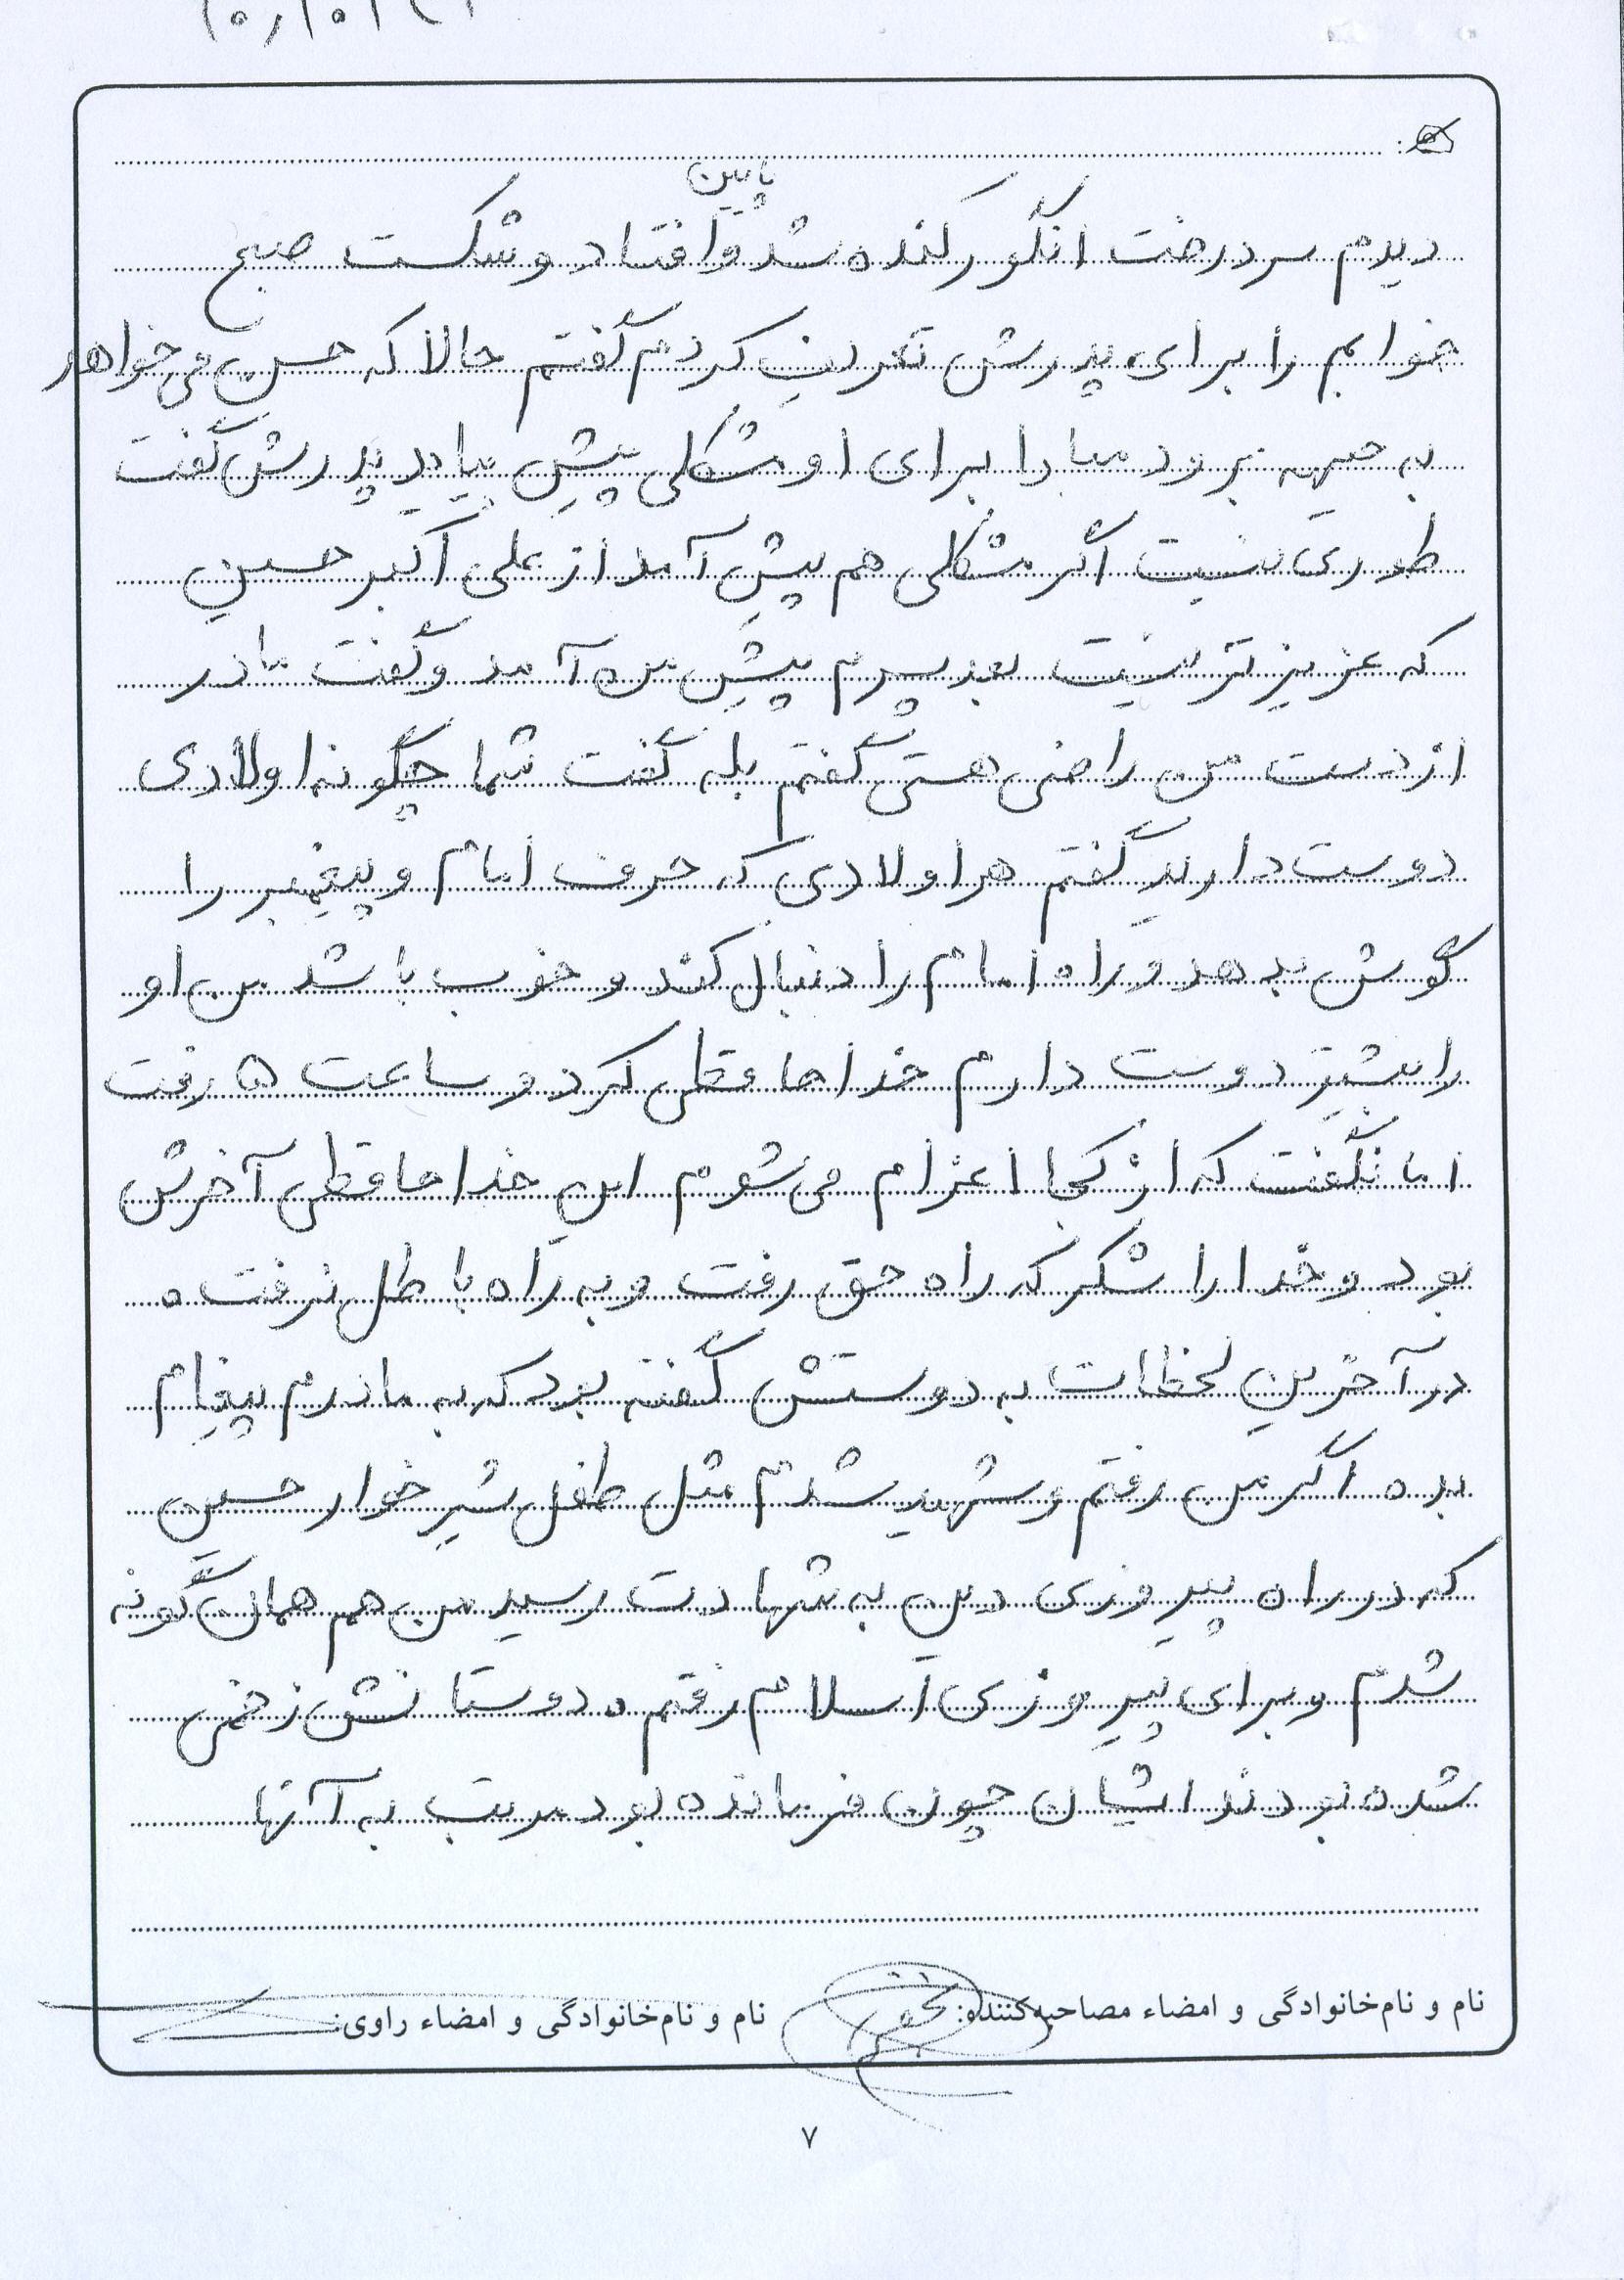 دیدم سر درخت انگور کنده شد و پایین افتاد و شکست صبح
خوابم را برای پدرش تعریف کردم گفتم حالا که حسن می خواهد
به جبهه برود مبادا برای او مشکلی پیش بیاید پدرش گفت
طوری نیست اگر مشکلی هم پیش آمد از علی اکبر حسین
که عزیز تر نیست بعد پسرم پیش من آمد و گفت مادر
از دست من راضی هستی گفتم بله گفت شما چگونه اولادی
دوست دارید گفتم هر اولادی که حرف امام و پیغمبر را
گوش بدهد و راه امام را دنبال کند و خوب باشد من او
را بیشتر دوست دارم خداحافظی کرد و ساعت ۵ رفت
اما نگفت که از کجا اعزام می شوم این خداحافظی آخرش
بود و خدا را شکر که راه حق رفت و به راه باطل نرفت .
در آخرین لحظات به دوستش گفته بود که به مادرم پیغام
بده اگر من رفتم و شهید شدم مثل طفل شیرخوار حسین
که در راه پیروزی دین به شهادت رسید من هم همان گونه
شدم و برای پیروزی اسلام رفتم . دوستانش زخمی
شده بودند ایشان چون فرمانده بود مرتب به آنها
نام و نام‌خانوادگی و امضاء مصاحبه‌کننده:
نام و نام‌خانوادگی و امضاء راوی:
۷